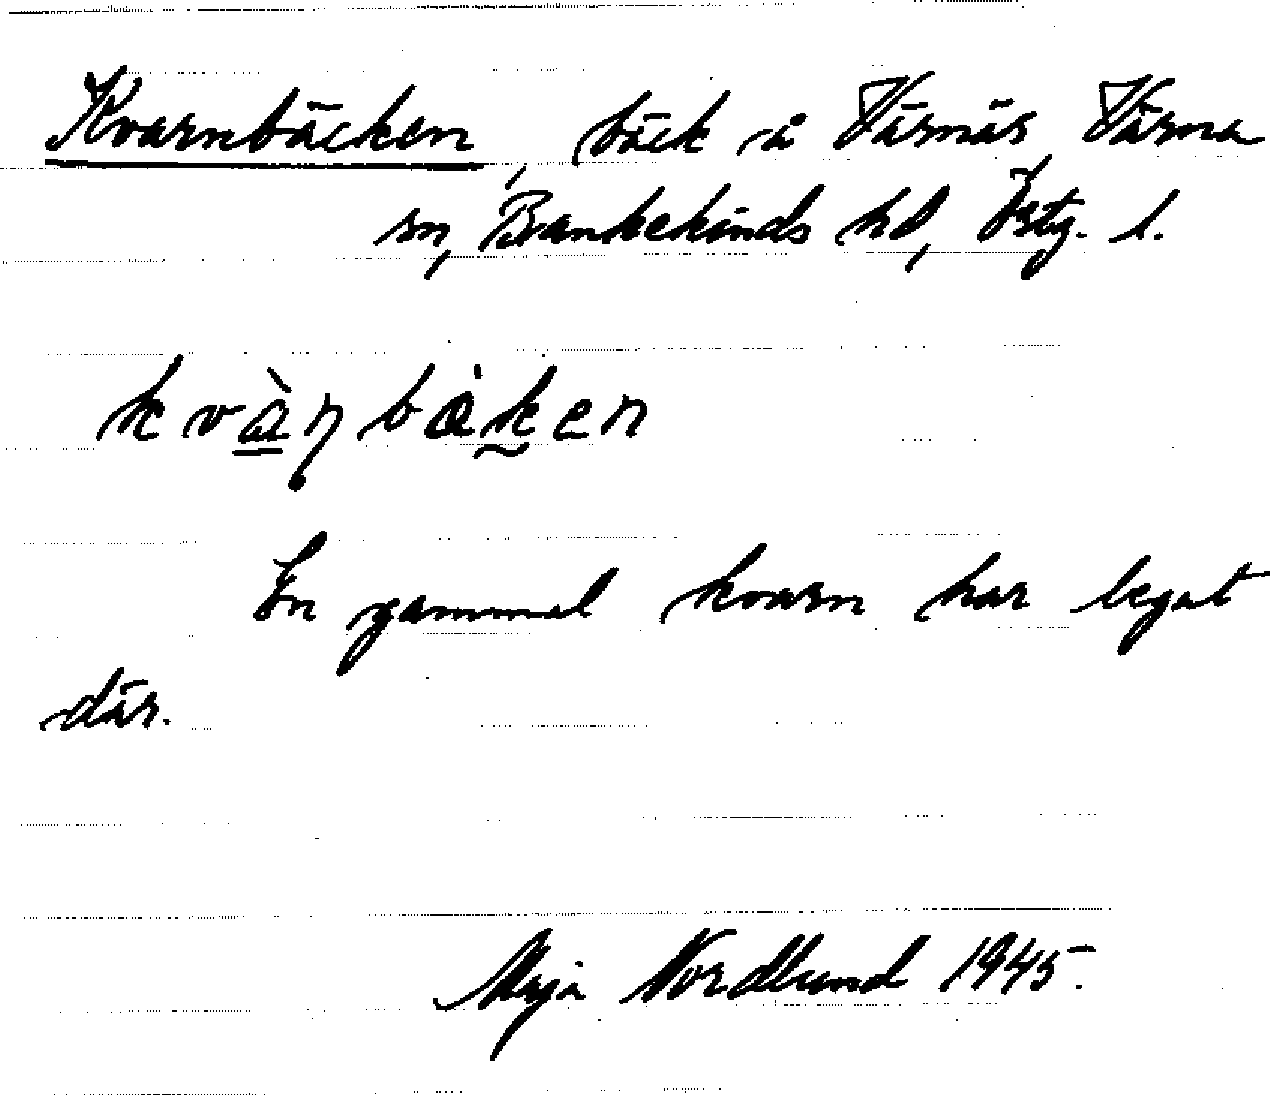 Kvarnbäcken, bäck å Värnäs Värna
sn, Bankekinds hd, Östg. l.
kvàɳbæken
En gammal kvarn har legat
där.
Maja Nordlund 1945.